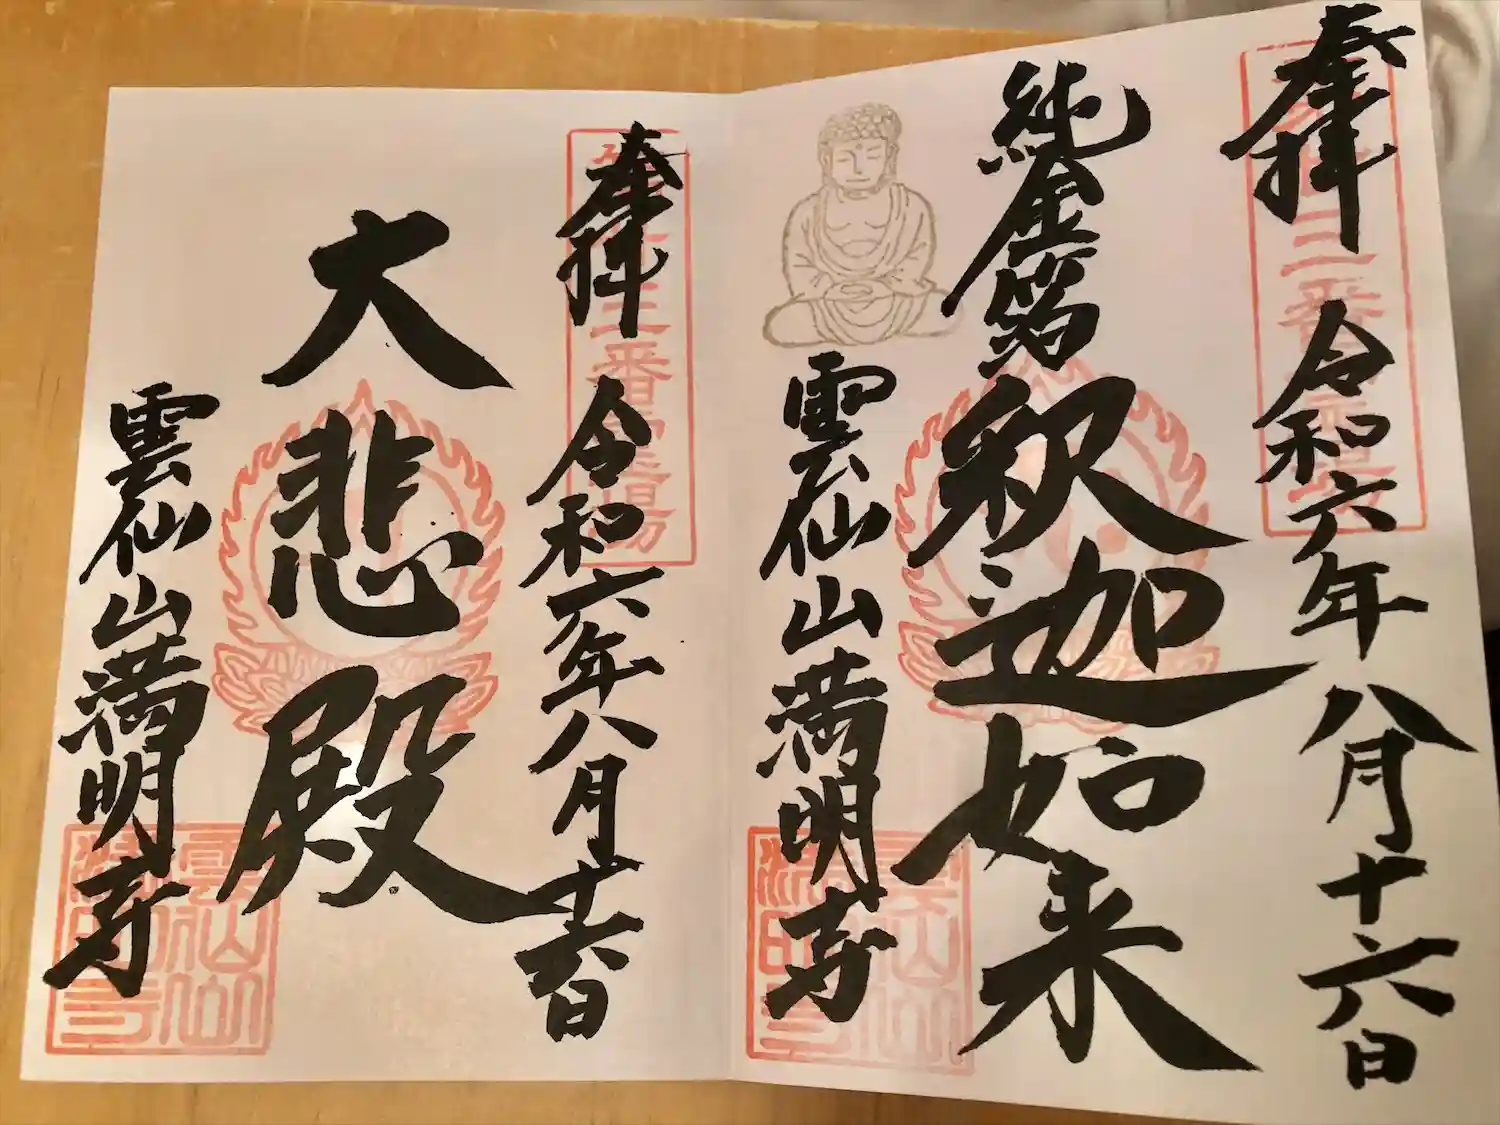 奉拝
令和六年八月十六日
純金箔
釈迦如来
雲仙山満明寺
奉拝
令和六年八月十六日
大悲殿
雲仙山満明寺
雲仙山
満明寺